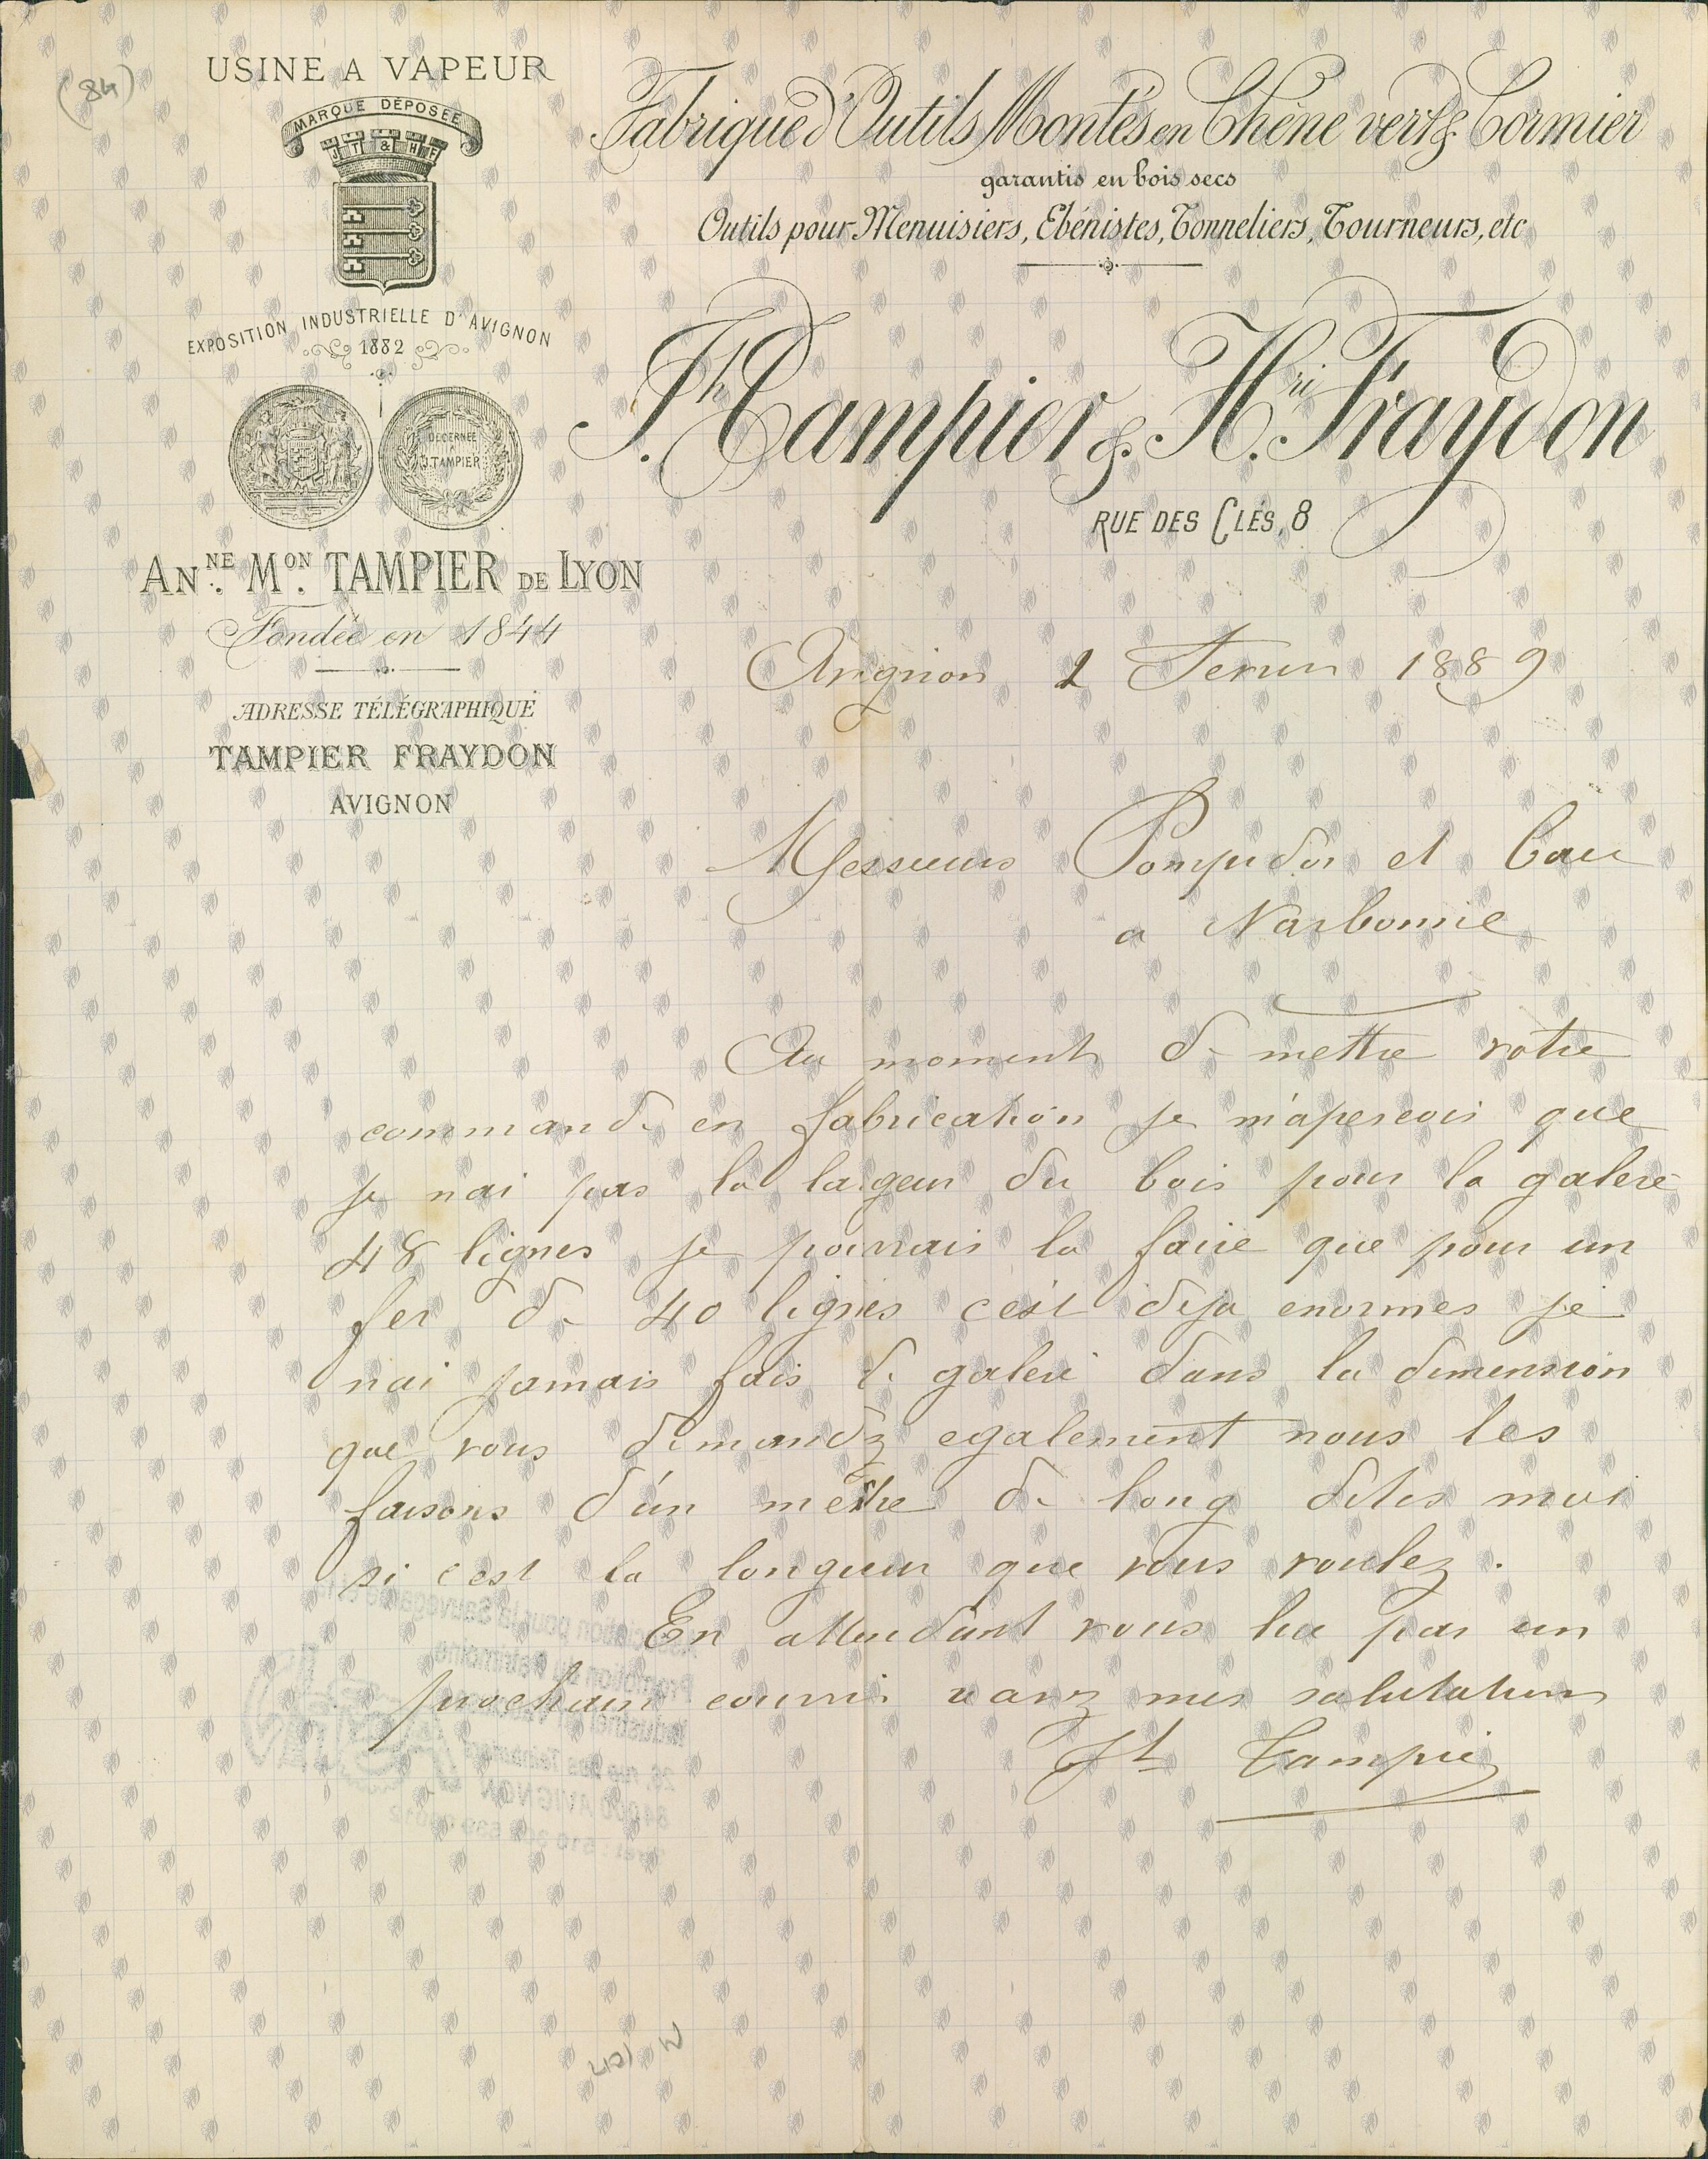 (84)
USINE A VAPEUR
MARQUE DÉPOSÉE
J T & H F
EXPOSITION INDUSTRIELLE D'AVIGNON
1882
DÉCERNÉE
A
J. TAMPIER
ANNE. MON. TAMPIER DE LYON
Fondée en 1844
ADRESSE TÉLÉGRAPHIQUE
TAMPIER FRAYDON
AVIGNON
Fabrique d'Outils Montés en Chêne vert & Cormier
garantis en bois secs
Outils pour Menuisiers, Ebénistes, Tonneliers, Tourneurs, etc
Jh. Tampier & Hri. Fraydon
RUE DES CLÉS, 8
Avignon 2 1889
Messieurs et
a Narbonne
Au moment de mettre votre
commande en fabrication je m'apercois que
je nai pas la largeur du bois pour la galere
48 lignes je pourrais la faire que pour un
fer de 40 lignes c'est deja enormes je
nai jamais fais de galere dans la dimension
que vous demandez egalement nous les
faisons d'un metre de long dites moi
si c'est la longueur que vous voulez.
En attendant vous lire par un
prochain courrier mes salutations
Jh Tampier
Association pour la Sauvegarde et la
Promotion du Patrimoine
Industriel
84000 AVIGNON